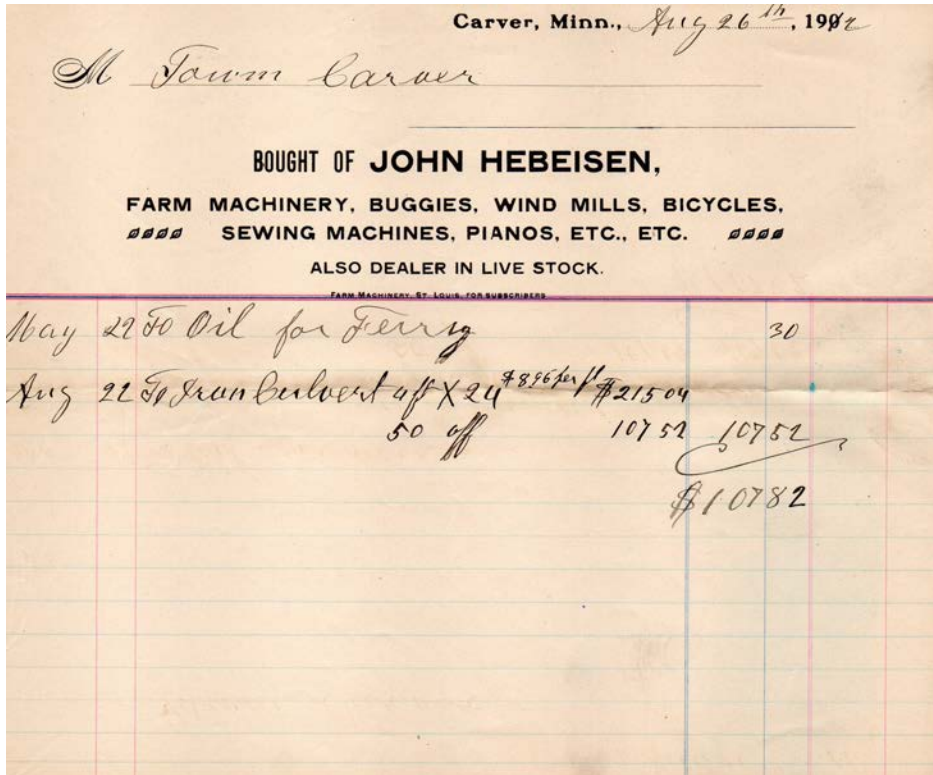 Carver, Minn., Aug 26th, 1912
M Town Carver
BOUGHT OF JOHN HEBEISEN,
FARM MACHINERY, BUGGIES, WIND MILLS, BICYCLES,
SEWING MACHINES, PIANOS, ETC., ETC.
ALSO DEALER IN LIVE STOCK.
FARM MACHINERY, ST. LOUIS, FOR SUBSCRIBERS
May 22 To Oil for Ferry 30
Aug 22 To Iron Culvert 4 ft X 24 $8.96 per ft $215 04
50 off 107 52 107 52
$107 82